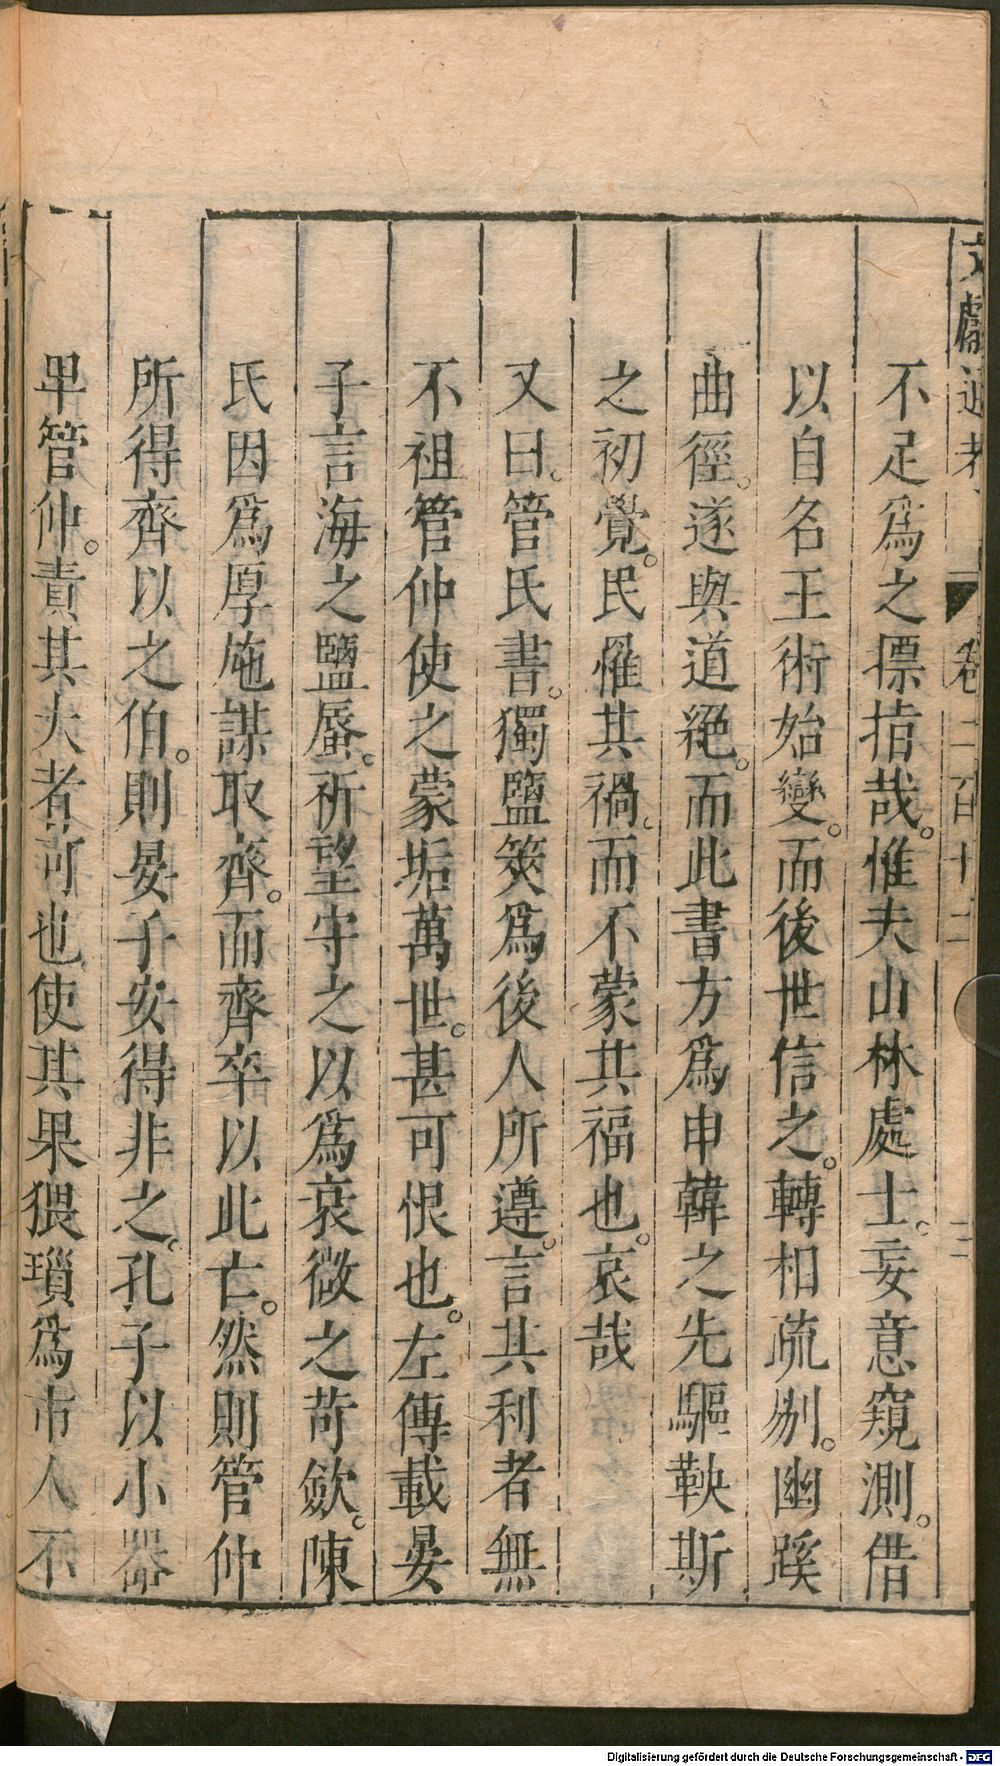 文獻通考 卷二百十二 三
不足爲之摽掯哉。惟夫山林處士。妄意窺測。借
以自名王術始變。而後世信之。轉相疏別。幽蹊
曲徑。遂與道絕。而此書方爲申韓之先驅鞅斯
之初覺。民罹其禍。而不蒙其福也。哀哉
又曰。管氏書。獨鹽筴爲後人所遵。言其利者無
不祖管仲使之蒙垢萬世。甚可恨也。左傳載晏
子言海之鹽蜃。祈望守之以爲衰微之苛斂。陳
氏因爲厚施謀取齊。而齊卒以此亡。然則管仲
所得齊以之伯。則晏子安得非之。孔子以小器
卑管仲。責其大者可也使其果猥瑣爲市人不
Digitalisierung gefördert durch die Deutsche Forschungsgemeinschaft - DFG